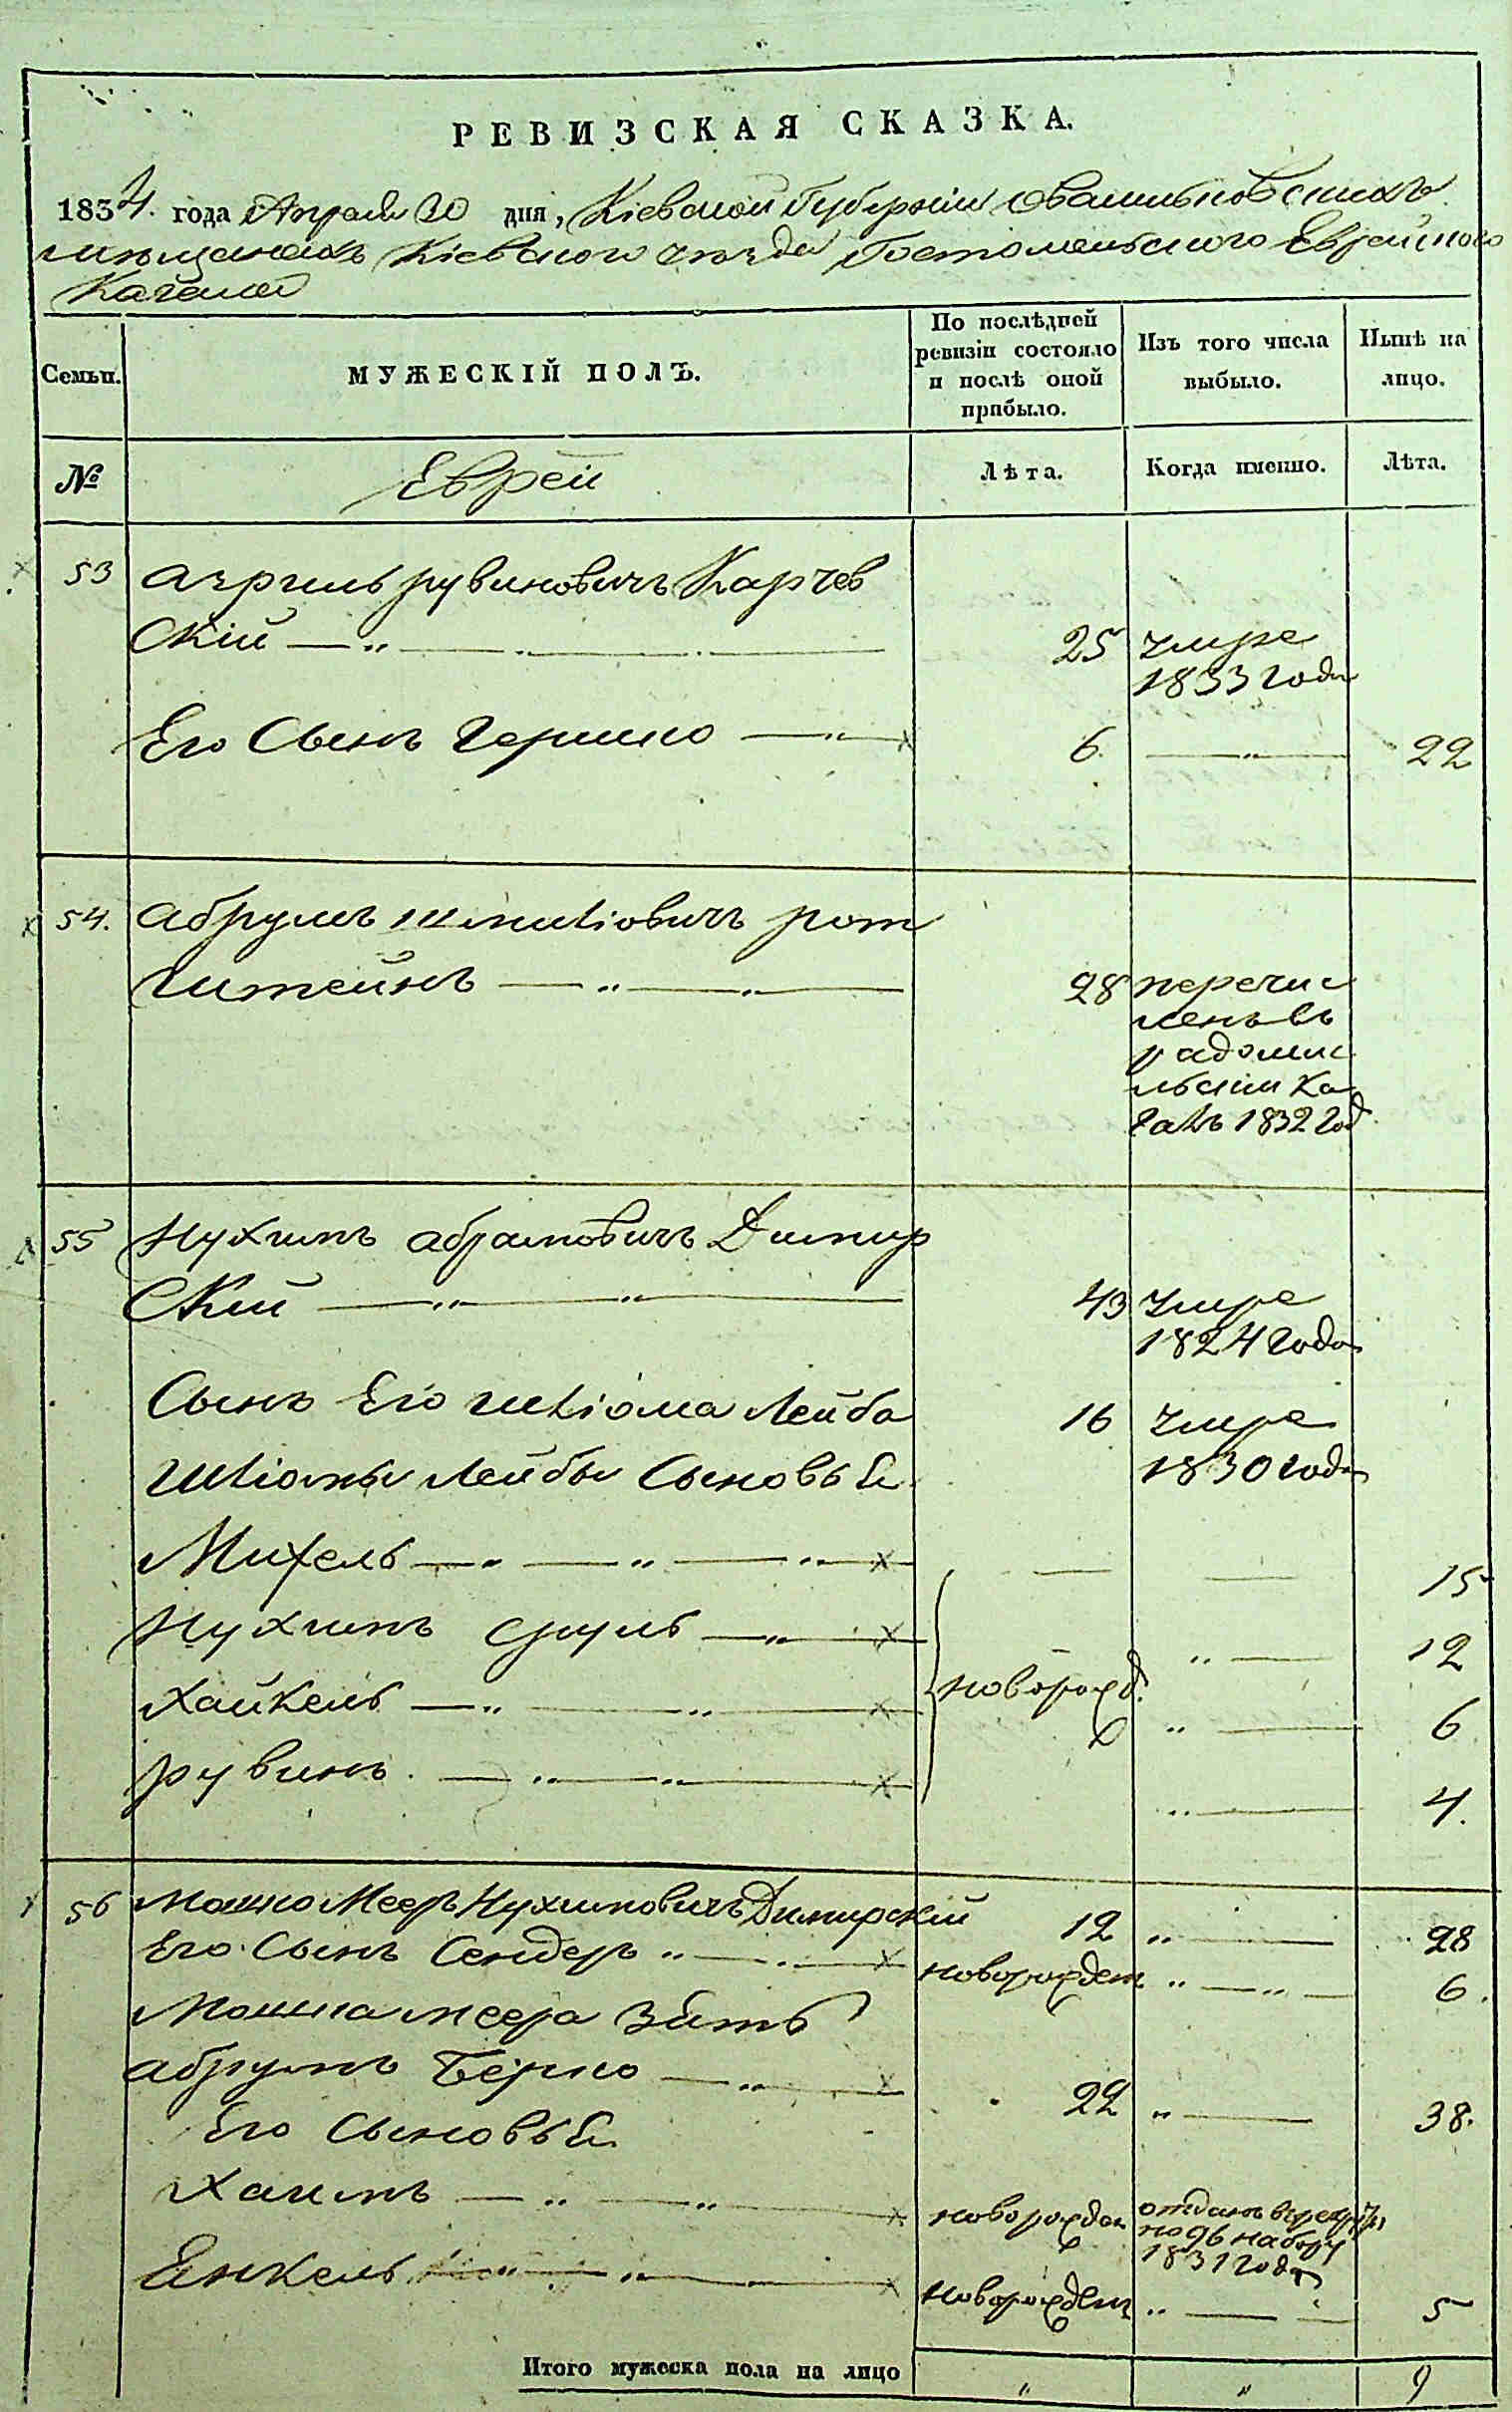 РЕВИЗСКАЯ СКАЗКА.
1834. года Апреля 30 дня, Кіевской Губерніи о Васильковскихъ
мещанахъ Кіевского уезда Гостомельского Еврейского
Кагала
Семьи.
МУЖЕСКІЙ ПОЛЪ.
По послѣдней ревизіи состояло и послѣ оной прибыло.
Изъ того числа выбыло.
Нынѣ на лицо.
№
Еврѣи
Лѣта.
Когда именно.
Лѣта.
53 Азриль рувиновичъ Карчев
Скій — „ — 25 умре
1833 года
Его Сынъ Гершко — „ — 6. — „ — 22
54. абрумъ шмиліовичъ рот
Штейнъ — „ — „ — 28 перечис
ленъ въ
радомис
льскій Ка
галъ 1832 год
55 Нухимъ абрамовичъ Димир
Скій — „ — „ — 43 умре
1824 года
Сынъ Его шліома Лейба 16 умре
Шліомы Лейбы Сыновья 1830 года
Михель — „ — „ — „ — — — 15
Нухимъ сруль — „ — „ — 12
новорожд.
Хайкель — „ — „ — „ — 6
рувинъ. — „ — „ — „ — 4.
56 Мошко Мееръ Нухимовичъ Димирскій 12 „ — 28
Его Сынъ Сендеръ „ — новорожден „ — „ — 6.
Мошка меера Зять
абрумъ Берко — „ — 22 „ — 38.
Его Сыновья
Хаимъ — „ — „ — новорожден отданъ в рекруты
по 96 набору
1831 года
Янкель — „ — „ — новорожден „ — 5
Итого мужеска пола на лицо „ „ 9